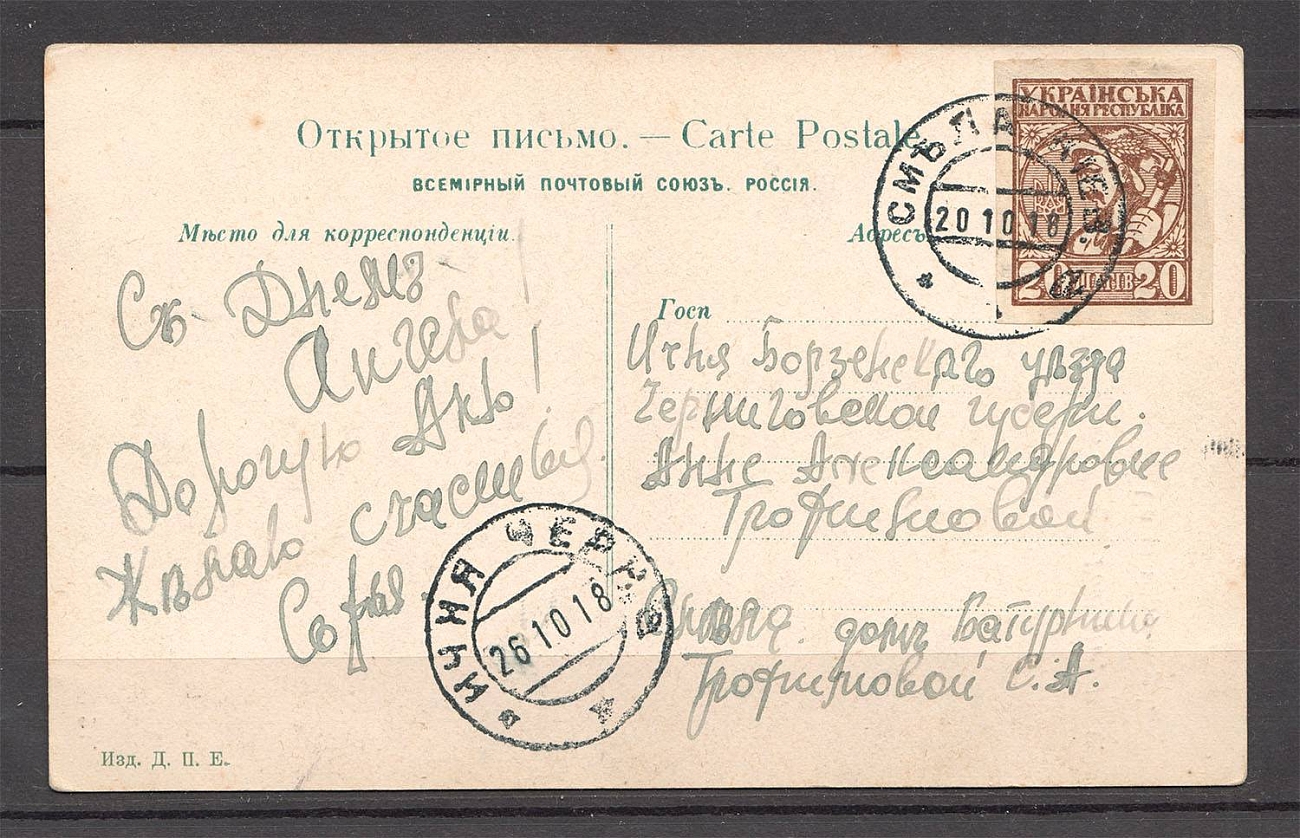 Открытое письмо. — Carte Postale
ВСЕМІРНЫЙ ПОЧТОВЫЙ СОЮЗЪ. РОССІЯ.
УКРАЇНСЬКА
НАРОДНЯ РЕСПУБЛІКА
20 ШАГІВ 20
СМѢЛА КІЕВ.
20 10 18
Мѣсто для корреспонденціи.
Адресъ
Съ Днемъ
Ангела!
Дорогую Аню!
Желаю счастья.
Софья
Госп
Ичня Борзенскаго уѣзда
Черниговской губерн.
Анне Александровне
Трофимовой
домъ Батурина
Трофимовой С. А.
ИЧНЯ ЧЕРН.
26 10 18
Изд. Д. П. Е.